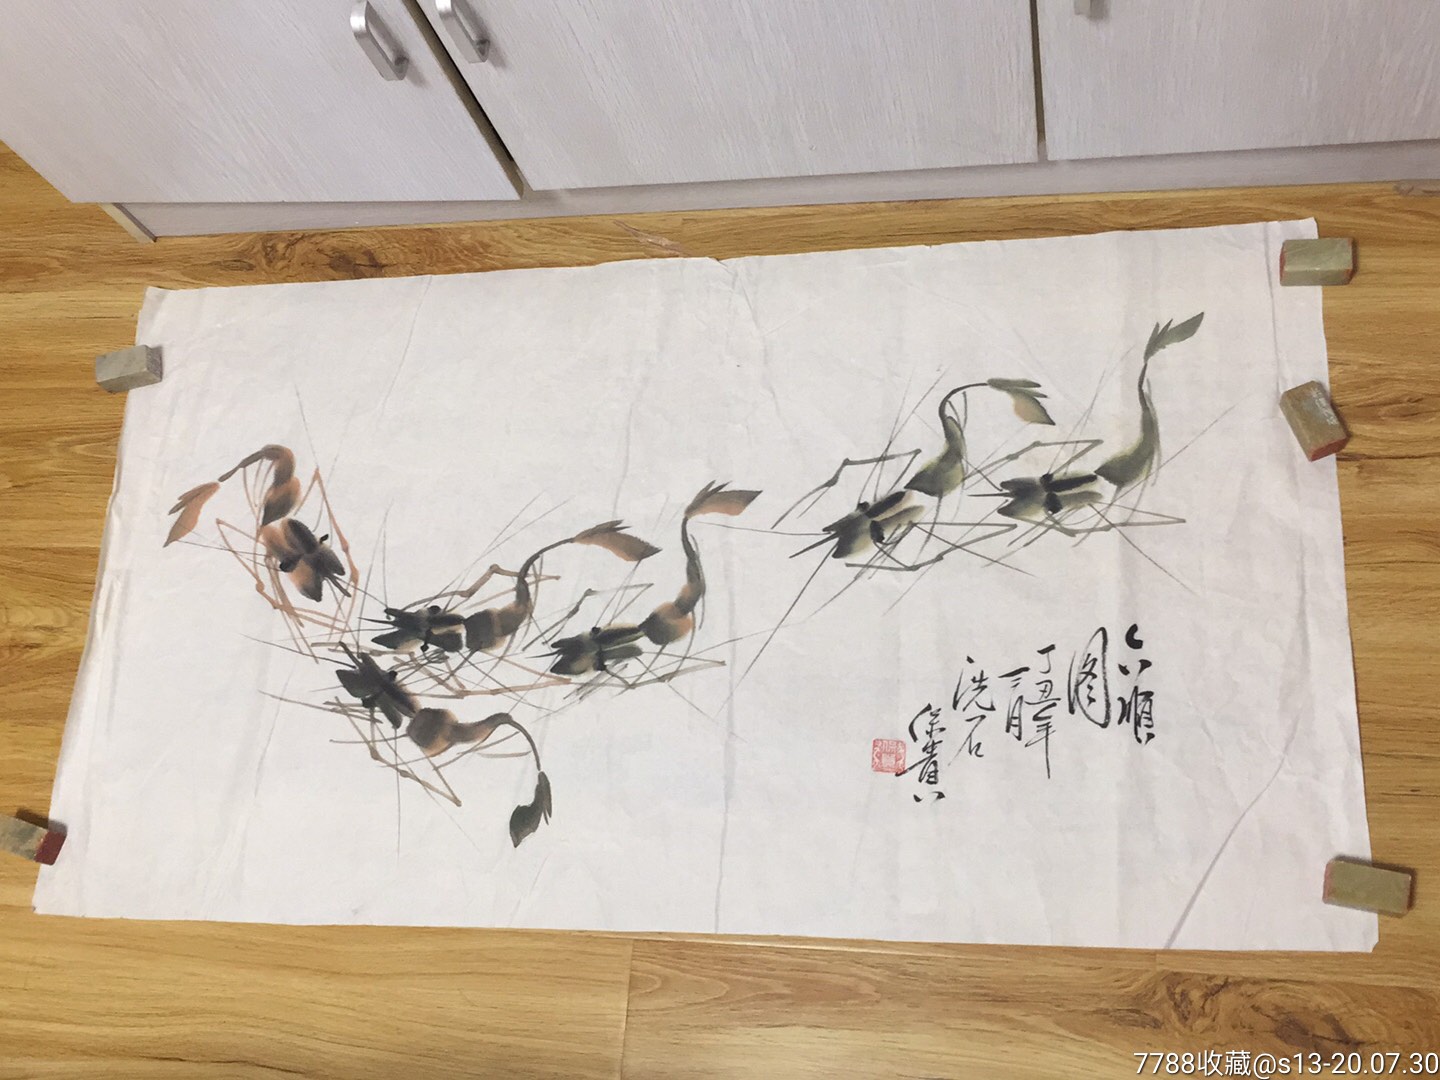 六顺
图
丁丑年
三月
洗石
7788收藏@s13-20.07.30